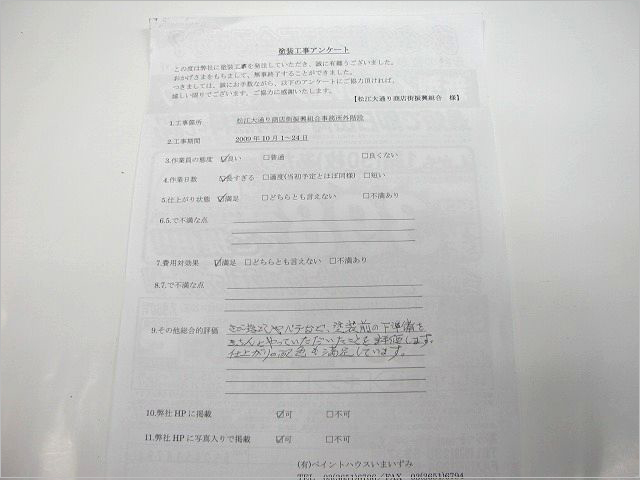 塗装工事アンケート
この度は弊社に塗装工事を発注していただき、誠に有難うございました。
おかげさまをもちまして、無事終了することができました。
つきましては、誠にお手数ながら、以下のアンケートにご協力頂ければ、
嬉しい限りでございます。ご協力に感謝いたします。
【松江大通り商店街振興組合 様】
1.工事箇所 松江大通り商店街振興組合事務所外階段
2.工事期間 2009年10月1～24日
3.作業員の態度 ☑良い □普通 □良くない
4.作業日数 ☑長すぎる □適度(当初予定とほぼ同様) □短い
5.仕上がり状態 ☑満足 □どちらとも言えない □不満あり
6.5.で不満な点
7.費用対効果 ☑満足 □どちらとも言えない □不満あり
8.7.で不満な点
9.その他総合的評価 さび落としやパテ台ど、塗装前の下準備を
きちんとやっていただいたことを評価します。
仕上がりの配色も満足しています。
10.弊社HPに掲載 ☑可 □不可
11.弊社HPに写真入りで掲載 ☑可 □不可
(有)ペイントハウスいまいずみ
TEL 03(3651)6796／FAX 03(3651)6794